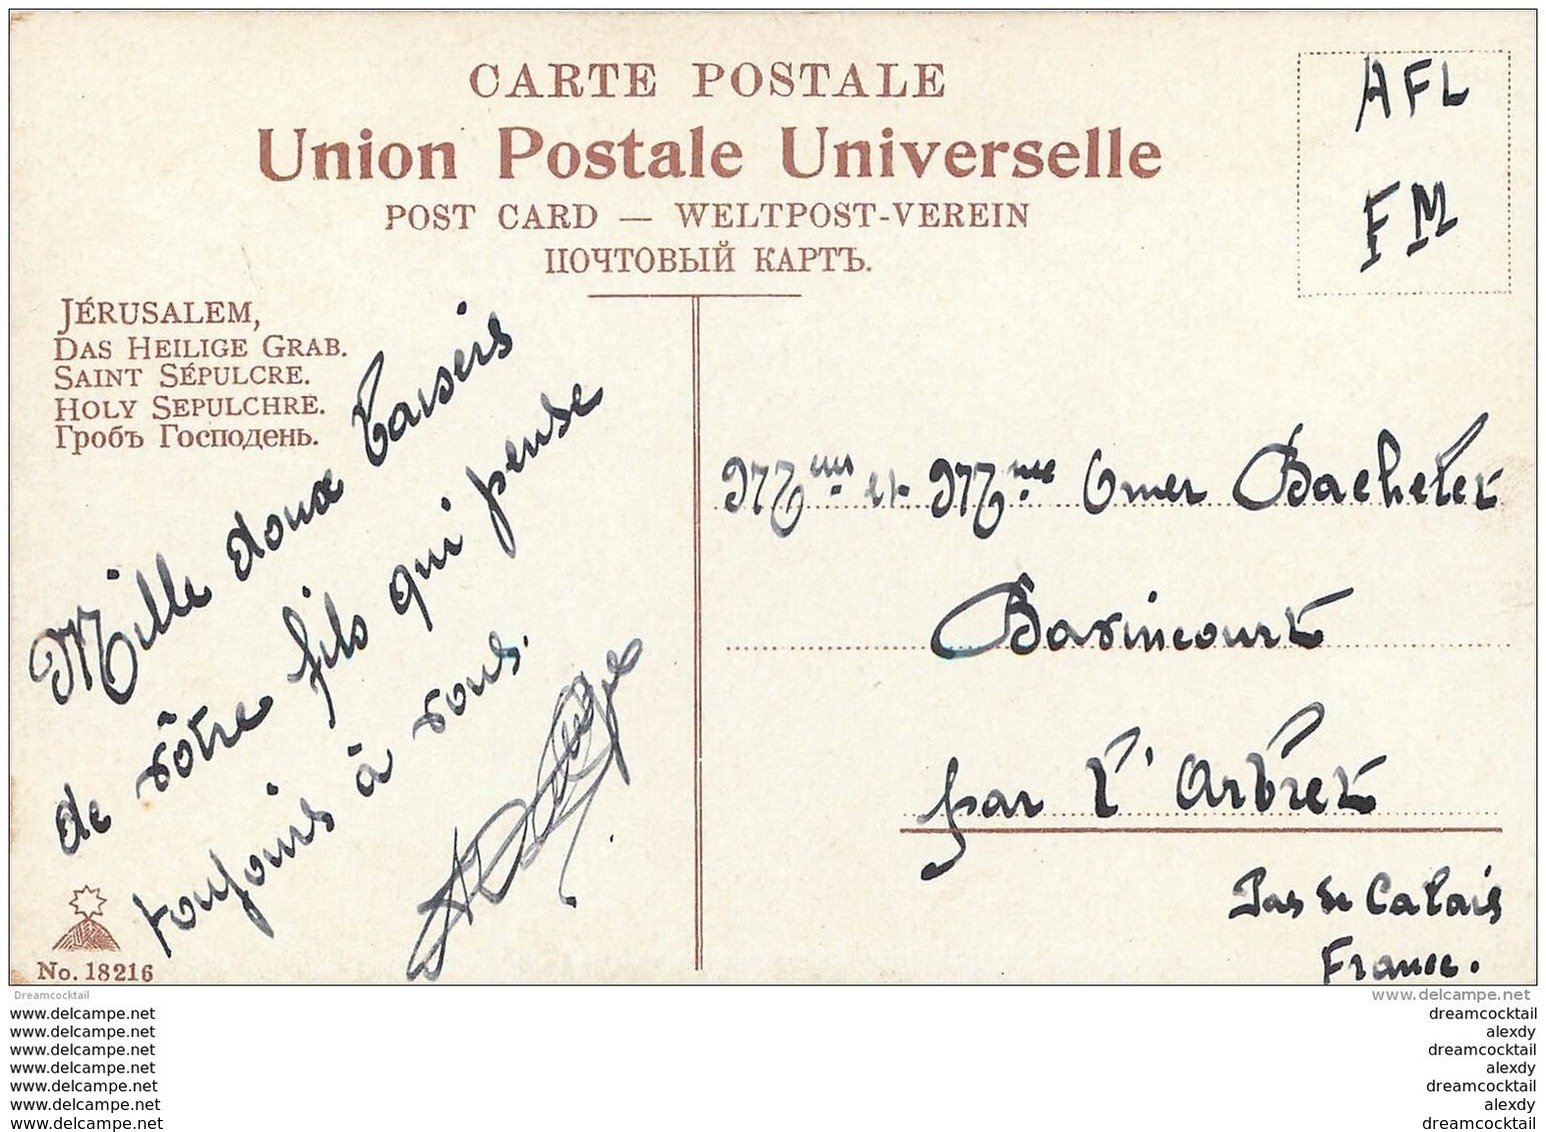 CARTE POSTALE
Union Postale Universelle
POST CARD — WELTPOST-VEREIN
ПОЧТОВЫЙ КАРТЪ.
AFL
FM
JÉRUSALEM,
DAS HEILIGE GRAB.
SAINT SÉPULCRE.
HOLY SEPULCHRE.
Гробъ Господень.
Mille doux baisers
de vôtre fils qui pense
toujours à vous.
et Mme Omer Bachelet
Bavincourt
par L'Arbret
Pas de Calais
France.
No. 18216
Dreamcocktail
www.delcampe.net
www.delcampe.net
www.delcampe.net
www.delcampe.net
www.delcampe.net
www.delcampe.net
www.delcampe.net
www.delcampe.net
dreamcocktail
alexdy
dreamcocktail
alexdy
dreamcocktail
alexdy
dreamcocktail